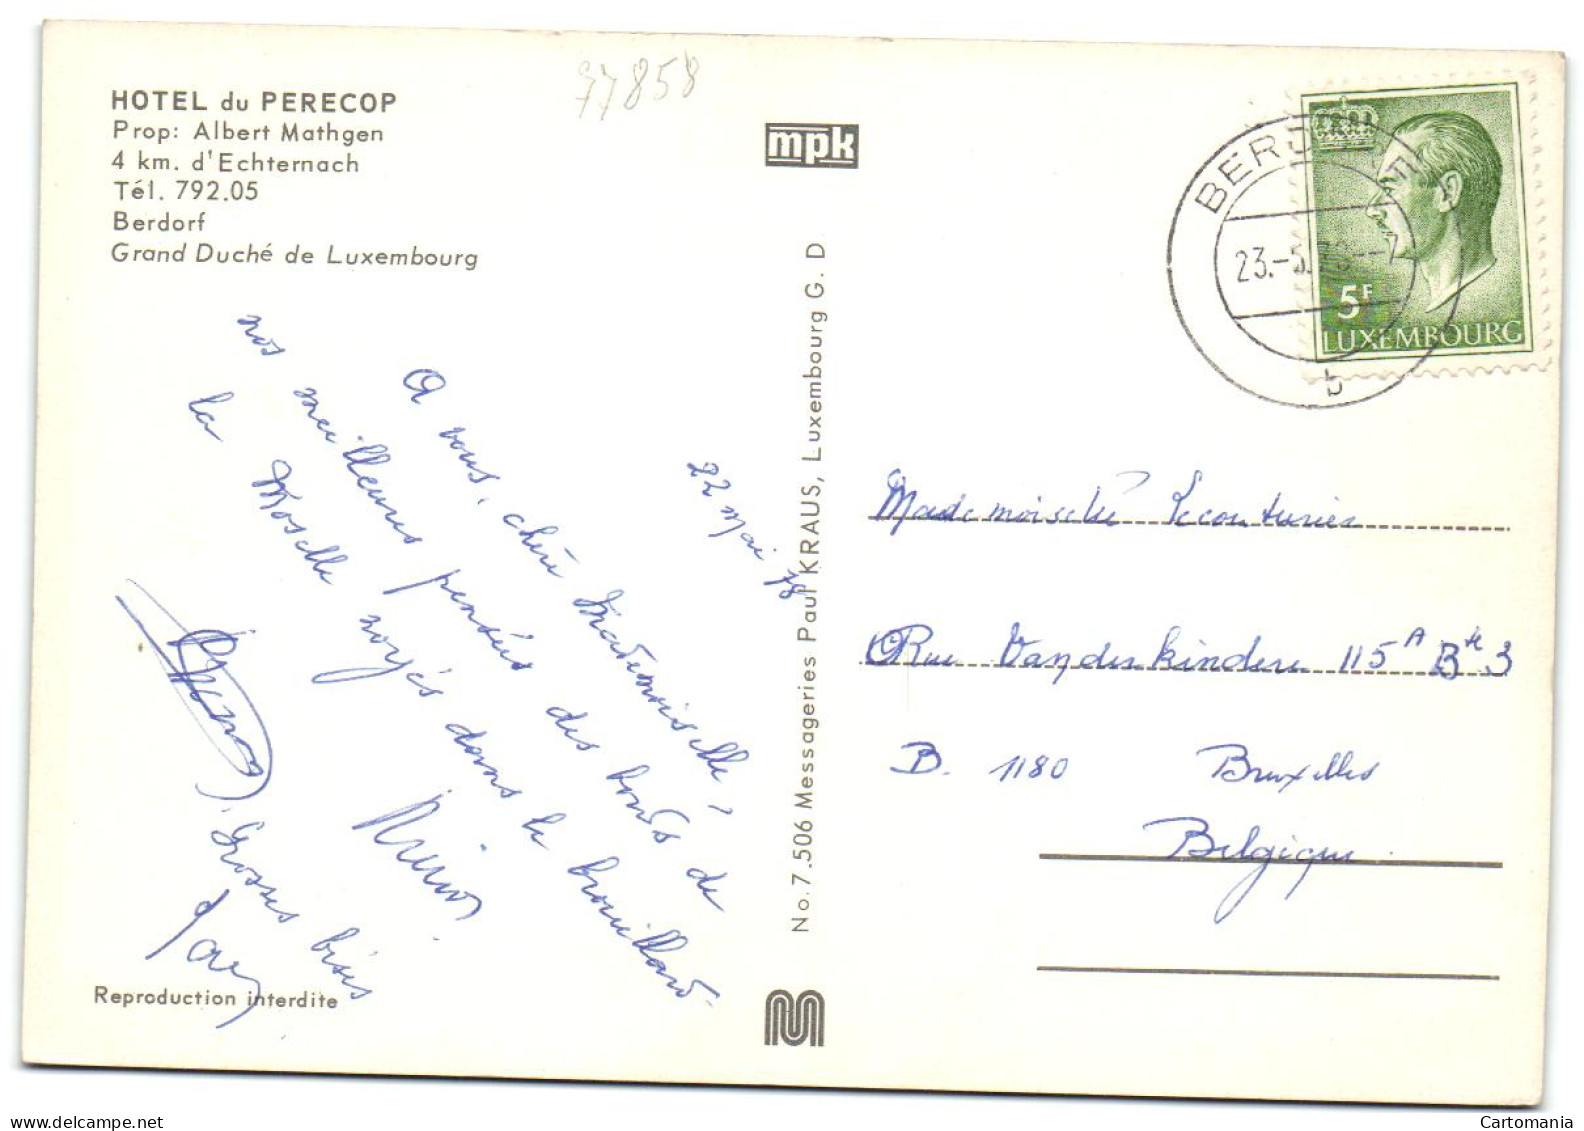 77858
HOTEL du PERECOP
Prop: Albert Mathgen
4 km. d'Echternach
Tél. 792.05
Berdorf
Grand Duché de Luxembourg
mpk
BERDORF
23.-5.78--7
b
5F
LUXEMBOURG
22 mai 78
A vous, chère Mademoiselle,
nos meilleures pensées des bords de
la Moselle noyés dans le brouillard.
Grosses bises
Reproduction interdite
No. 7.506 Messageries Paul KRAUS, Luxembourg G. D
Mademoiselle Lecouturier
Rue Vanderkindere 115A Bte 3
B. 1180 Bruxelles
Belgique
Cartomania
www.delcampe.net